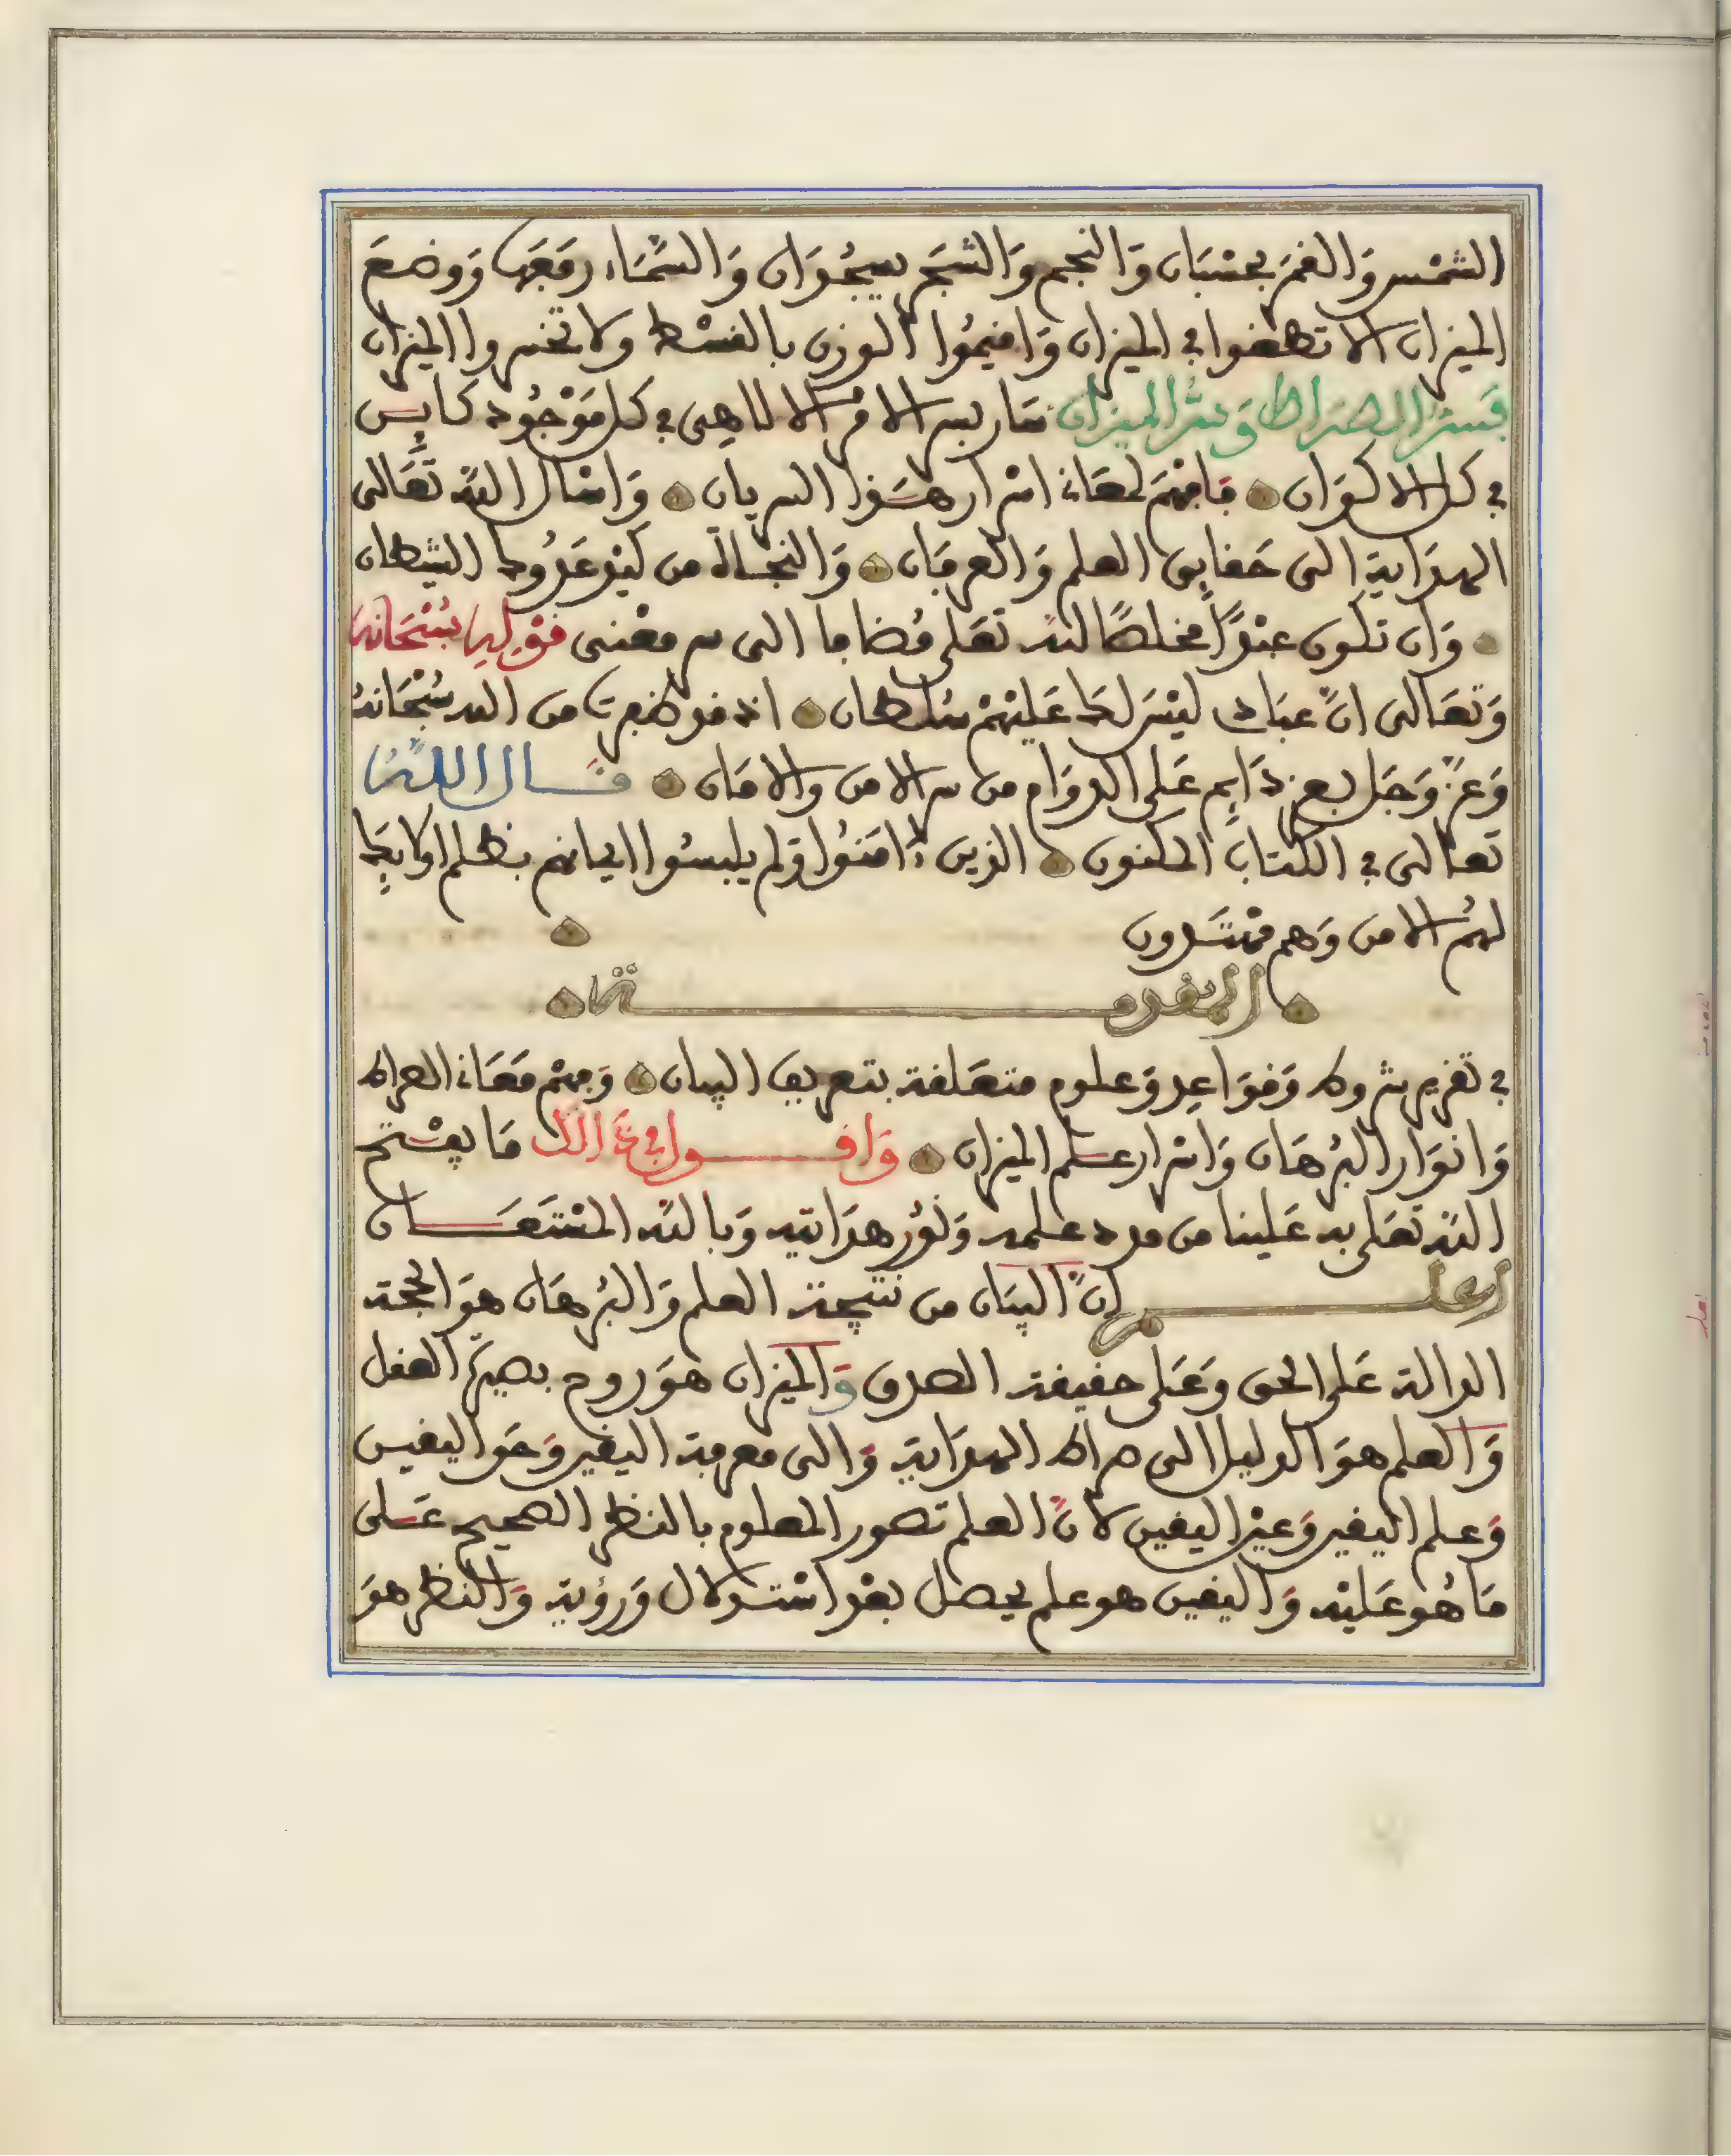 الشمْس وَالقمَر بحسْبَان وَالنجم وَالشجَر يسجُدَان وَالسَّمَاء رفعَهَا وَوضعَ
الميزان الا تطغوا في الميزان وَاقيمُوا الوزن بالقسْط ولا تخسروا الميزان
فسرّ الصرَاط وَسرّ الميزان سَار بسر الامر الالاهى في كل مَوْجُود كايِن
في كل الاكوَان فافهَم لمعَانى اسْرار هَذا السريان وَاسْال اللّه تَعَالى
الهدَاية الى حَقايق العلم وَالعرفان وَالنجَاة من كَيْد عَدُوك الشيطان
وَان تكون عبْدًا مخلصًا للّه تعَلى مُضافا الى سر معْنى قوْلِهِ سُبْحَانه
وَتعَالى انَّ عبَادى ليْسَ لكَ عَليْهمْ سُلطان اذ قد ظفرت من الله سُبْحَانهُ
وَعَزّ وَجَل بعز دَايِم عَلى الدوَام من سر الامن والامَان قَال اللّهُ
تعالى في الكتاب المكنون الذين ءامَنُوا وَلم يلبسُوا ايمانهم بظلم اولايِكَ
لهُم الامن وَهم مهْتَدون
المقدمـة
في تقرير شروط وَقوَاعِد وَعلوم متعَلقة بتعريف البيان وَفهْم مَعَانى الصراط
وَانوَار البُرهَان وَاسْرار علم الميزان وَاقـول في ذَالك مَا يفْتح
اللّه تعَلى به عَلينا من مدد علمه وَنوُر هدَايته وَباللّه المسْتَعَان
اعلـم انَّ البيَان من نتيجة العلم وَالبُرهَان هوَ الحجة
الدالة عَلى الحق وَعَلى حقيقة الصدق وَالميزان هوَ روح بصيرَة العقل
وَالعلم هوَ الدليل الى صراط الهدَاية وَالى معرفة اليقين وَحَق اليقين
وَعلم اليقين وَعيْن اليقين لانَّ العلم تصور المعلوم بالنظر الصحيح عَلى
مَا هُو عَليْه وَاليقين هو علم يحصل بعْد اسْتدلال وَرؤية وَالنظر هوَ